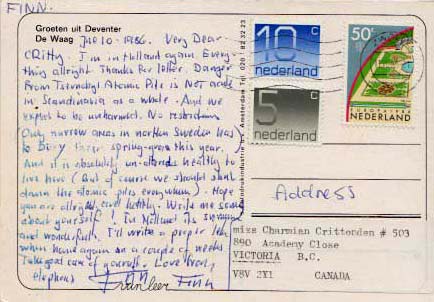 FINN.
Groeten uit Deventer
De Waag
10 - 1986. Very Dear
Critty. I'm in Holland again. Every-
thing allright. Thanks for letter. Danger
from Tsernobyl Atomic Pile is not acute
in Scandinavia as a whole. And we
expect to be unharmed. No restrictions
Only narrow areas in northern Sweden has
to bury their spring-grass this year.
And it is absolutely un-altered healthy to
live here (But of course we should shut
down the atomic piles everywhere). Hope
you are allright, and healthy. Write me some
about yourself! In Holland its spring
and wonderful. I'll write a proper letter
when home again in a couple of weeks
Take good care of yourself. Love from,
Finn
10 c
nederland
5 c
nederland
50 c
EUROPA CEPT
NEDERLAND
Address
miss Charmian Crittenden # 503
890 Academy Close
VICTORIA B.C.
V8V 2Y1 CANADA